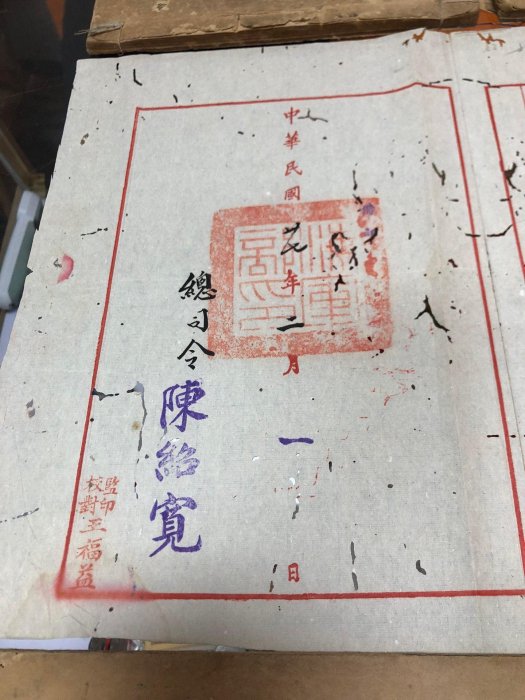 中華民國廿年二月一日
總司令陳紹寬
監印
校對
王福益